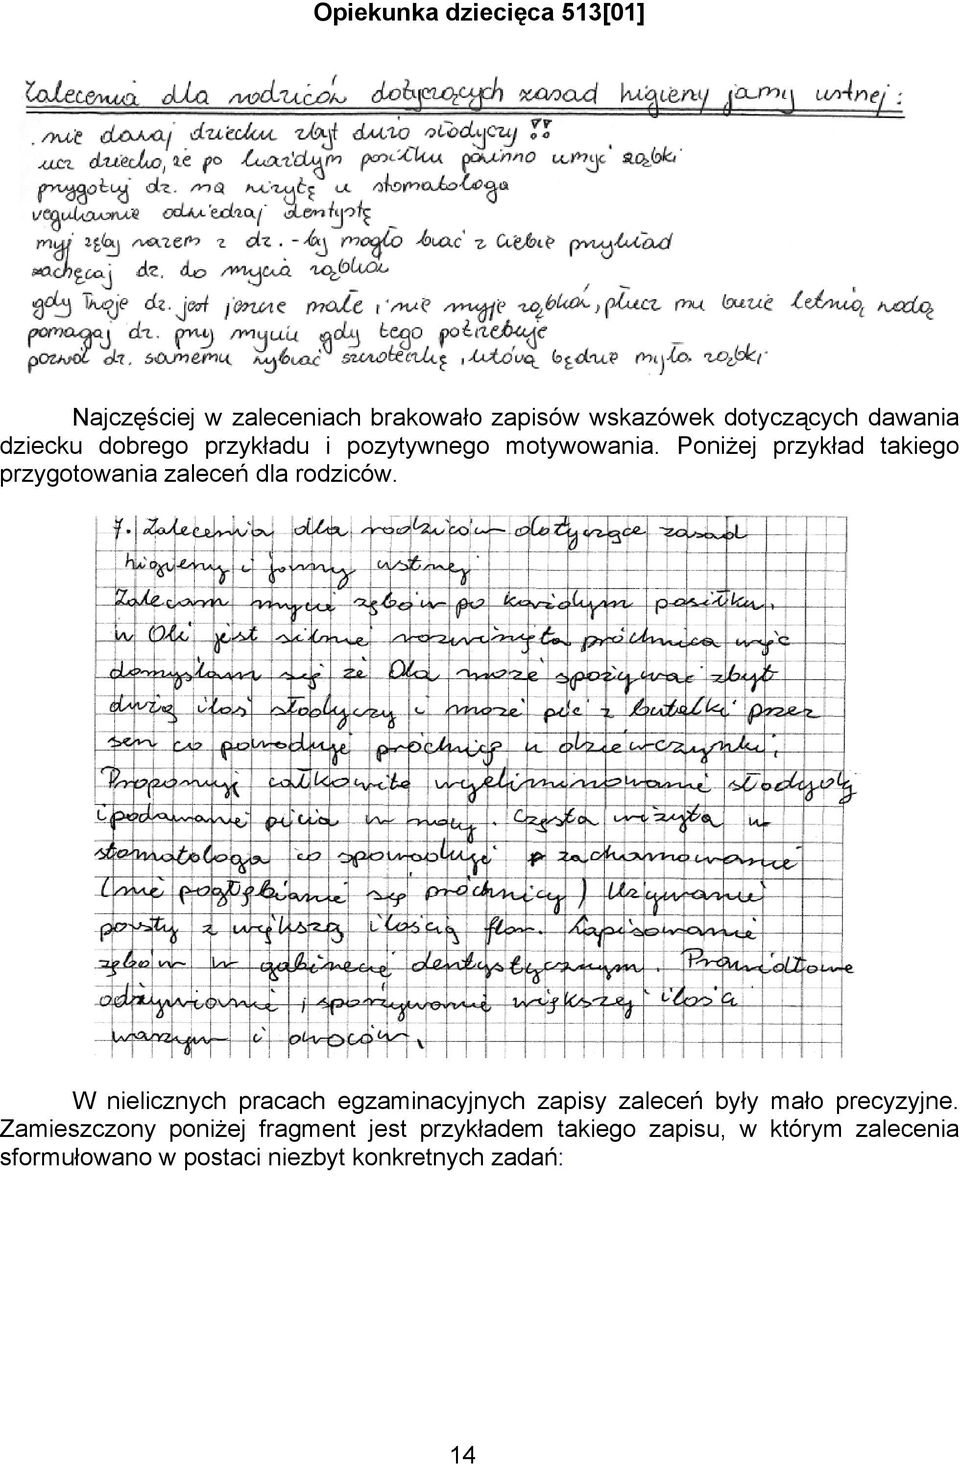 Opiekunka dziecięca 513[01]
Zalecenia dla rodziców dotyczących zasad higieny jamy ustnej:
. nie dawaj dziecku zbyt dużo słodyczy !!
ucz dziecko, że po każdym posiłku powinno umyć ząbki
przygotuj dz. na wizytę u stomatologa
regularnie odwiedzaj dentystę
myj zęby razem z dz. - by mogło brać z Ciebie przykład
zachęcaj dz. do mycia ząbków
gdy Twoje dz. jest jeszcze małe i nie myje ząbków, płucz mu buzię letnią wodą
pomagaj dz. przy myciu gdy tego potrzebuje
pozwól dz. samemu wybrać szczoteczkę, którą będzie myło ząbki
Najczęściej w zaleceniach brakowało zapisów wskazówek dotyczących dawania
dziecku dobrego przykładu i pozytywnego motywowania. Poniżej przykład takiego
przygotowania zaleceń dla rodziców.
7. Zalecenia dla rodziców dotyczące zasad
higieny i jammy ustnej
Zalecam mycie zębów po każdym posiłku,
u Oli jest silnie rozwinięta próchnica więc
domyślam się że Ola może spożywać zbyt
dużą ilość słodyczy i może pić z butelki przez
sen co powoduje próchnicę u dziewczynki;
Proponuję całkowite wyeliminowanie słodyczy
i podawanie picia w nocy. Częsta wizyta u
stomatologa co spowoduje zachamowanie
(nie pogłębianie się próchnicy) Używanie
pasty z większą ilością flor. Lapisowanie
zębów w gabinecie dentystycznym. Prawidłowe
odżywianie i spożywanie większej ilości
warzyw i owoców.
W nielicznych pracach egzaminacyjnych zapisy zaleceń były mało precyzyjne.
Zamieszczony poniżej fragment jest przykładem takiego zapisu, w którym zalecenia
sformułowano w postaci niezbyt konkretnych zadań:
14